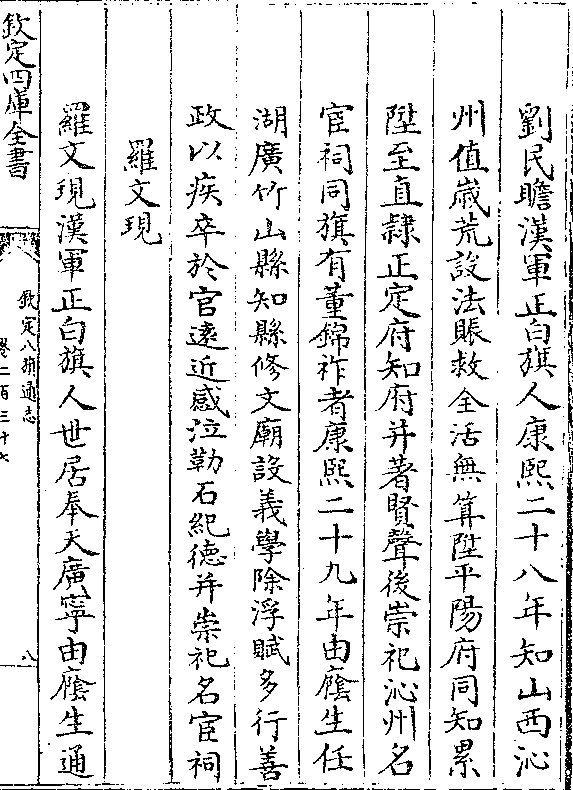 劉民瞻漢軍正白旗人康熙二十八年知山西沁
州值歲荒設法賑救全活無算陞平陽府同知累
陞至直隷正定府知府并著賢聲後崇祀沁州名
宦祠同旗有董錦祚者康熙二十九年由廕生任
湖廣竹山縣知縣修文廟設義學除浮賦多行善
政以疾卒於官遠近感泣勒石紀德并崇祀名宦祠
羅文現
羅文現漢軍正白旗人世居奉天廣寧由廕生通
欽定四庫全書
欽定八旗通志
卷二百三十七
八